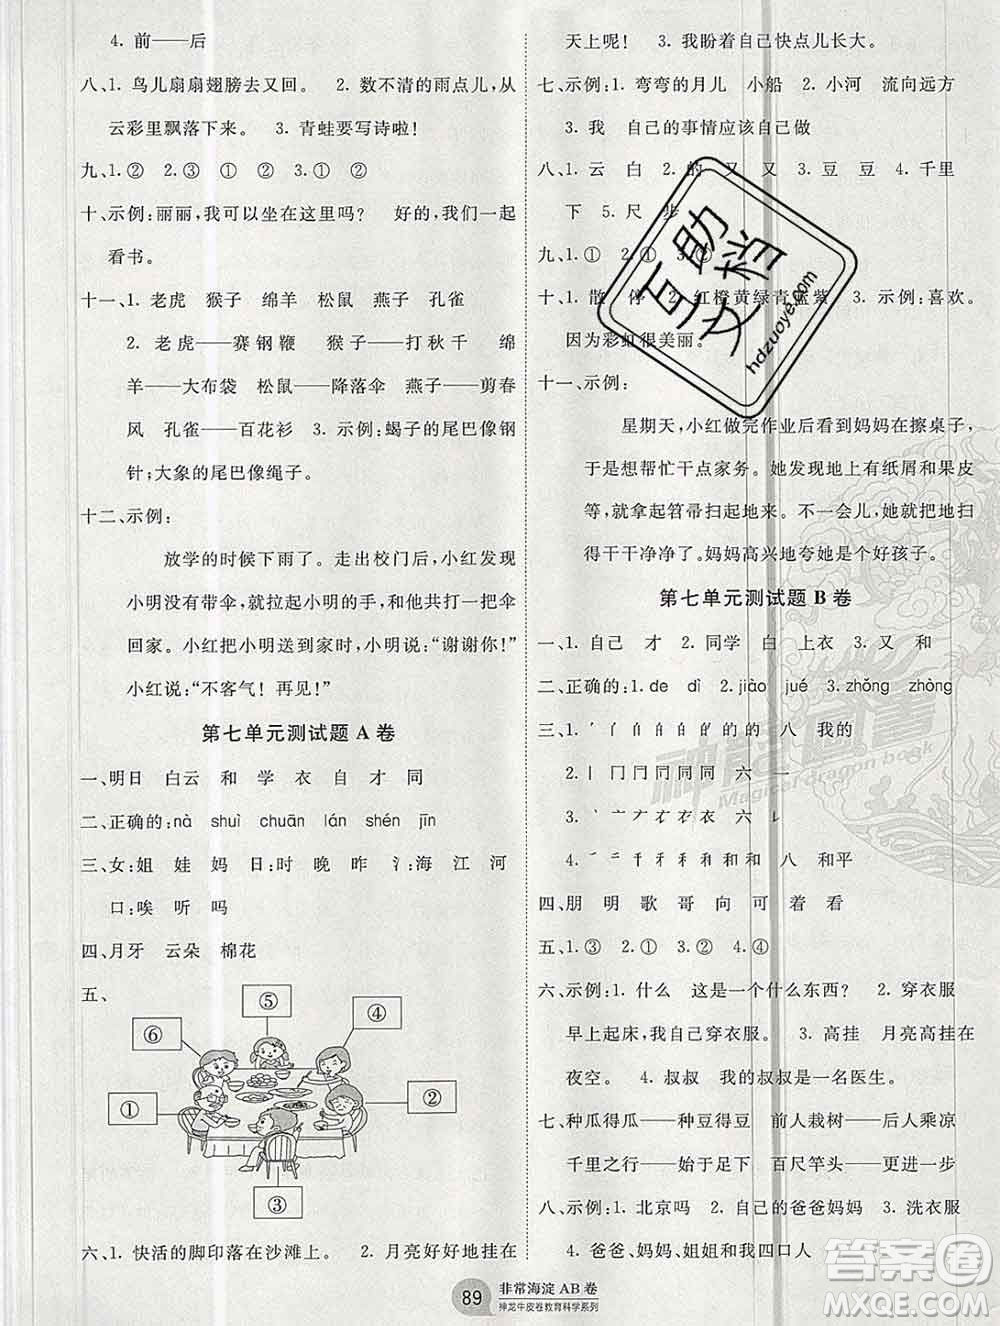 4. 前——后
八、1. 鸟儿扇扇翅膀去又回。 2. 数不清的雨点儿,从
云彩里飘落下来。 3. 青蛙要写诗啦!
九、1. ② 2. ③ ① ② ① ②
十、示例:丽丽,我可以坐在这里吗? 好的,我们一起
看书。
十一、1. 老虎 猴子 绵羊 松鼠 燕子 孔雀
2. 老虎——赛钢鞭 猴子——打秋千 绵
羊——大布袋 松鼠——降落伞 燕子——剪春
风 孔雀——百花衫 3. 示例:蝎子的尾巴像钢
针;大象的尾巴像绳子。
十二、示例:
放学的时候下雨了。走出校门后,小红发现
小明没有带伞,就拉起小明的手,一起打着伞
回家。小红把小明送到家时,小明说:“谢谢你!”
小红说:“不客气!再见!”
第七单元测试题 A 卷
一、明日 白云 和 学 衣 自 才 同
二、正确的:nà shuì chuān lán shén jīn
三、女:姐 娃 妈 日:时 晚 昨 氵:海 江 河
口:唉 听 吗
四、月牙 云朵 棉花
五、
⑤
④
⑥
①
②
③
六、1. 快活的脚印落在沙滩上。 2. 月亮好好地挂在
天上呢! 3. 我盼着自己快点儿长大。
七、示例:1. 弯弯的月儿 小船 2. 小河 流向远方
3. 我 自己的事情应该自己做
八、1. 云 白 2. 的 又 又 3. 豆 豆 4. 千里
下 5. 尺 步
九、1. ① 2. ① 3. ②
十、1. 散 停 2. 红橙黄绿青蓝紫 3. 示例:喜欢。
因为彩虹很美丽。
十一、示例:
星期天,小红做完作业后看到妈妈在擦桌子,
于是想帮忙干点家务。她发现地上有纸屑和果皮
等,就拿起笤帚扫起地来。不一会儿,她就把地扫
得干干净净了。妈妈高兴地夸她是个好孩子。
第七单元测试题 B 卷
一、1. 自己 才 2. 同学 白 上衣 3. 又 和
二、正确的:1. de dì 2. jiào jué 3. zhǒng zhòng
三、1. 八 我的
2. 丨 冂 冂 同 同 同 六 一
3. 六
4. 八 和平
四、朋 明 歌 哥 向 可 着 看
五、1. ③ 2. ① 3. ② 4. ④
六、示例:1. 什么 这是一个什么东西? 2. 穿衣服
早上起床,我自己穿衣服。 3. 高挂 月亮高挂在
夜空。 4. 叔叔 我的叔叔是一名医生。
七、种瓜得瓜——种豆得豆 前人栽树——后人乘凉
千里之行——始于足下 百尺竿头——更进一步
八、示例:1. 北京吗 2. 自己的爸爸妈妈 3. 洗衣服
4. 爸爸、妈妈、姐姐和我四口人
89
非常海淀 AB 卷
神龙牛皮卷教育科学系列
互助文档
hdzuoye.com
Magical dragon book
答案圈
MXQE.COM